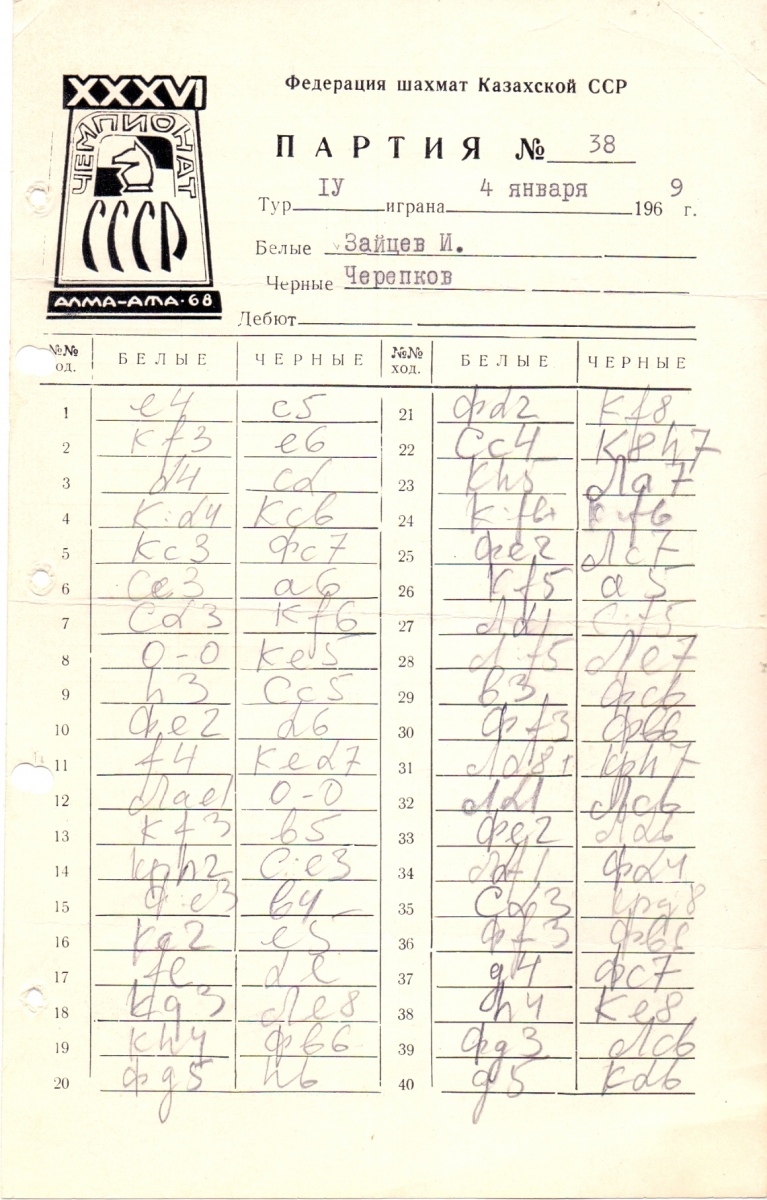 XXXVI
Федерация шахмат Казахской ССР
ЧЕМПИОНАТ
СССР
АЛМА-АТА·68
ПАРТИЯ № 38
Тур IУ играна 4 января 1969 г.
Белые Зайцев И.
Черные Черепков
Дебют
№№ ход. БЕЛЫЕ ЧЕРНЫЕ №№ ход. БЕЛЫЕ ЧЕРНЫЕ
1 e4 c5 21 Фd2 Kf8
2 Kf3 e6 22 Cc4 K8h7
3 d4 cd 23 Kh5 Лa7
4 K:d4 Kc6 24 K:f6+ K:f6
5 Kc3 Фc7 25 Фe2 Лc7
6 Ce3 a6 26 Kf5 a5
7 Cd3 Kf6 27 Лd1 C:f5
8 0-0 Ke5 28 Л:f5 Лe7
9 h3 Cc5 29 в3 Фc6
10 Фe2 d6 30 Фf3 Фв6
11 f4 Ked7 31 Лd8+ Kph7
12 Лae1 0-0 32 Лd1 Лc6
13 Kf3 в5 33 Фe2 Лd6
14 Kph2 C:e3 34 Лdf1 Фd4
15 Ф:e3 в4 35 Cd3 Kpg8
16 Ke2 e5 36 Фf3 Фв6
17 fe de 37 g4 Фc7
18 Kg3 Лe8 38 h4 Ke8
19 Kh4 Фв6 39 Фg3 Лc6
20 Фg5 h6 40 g5 Kd6